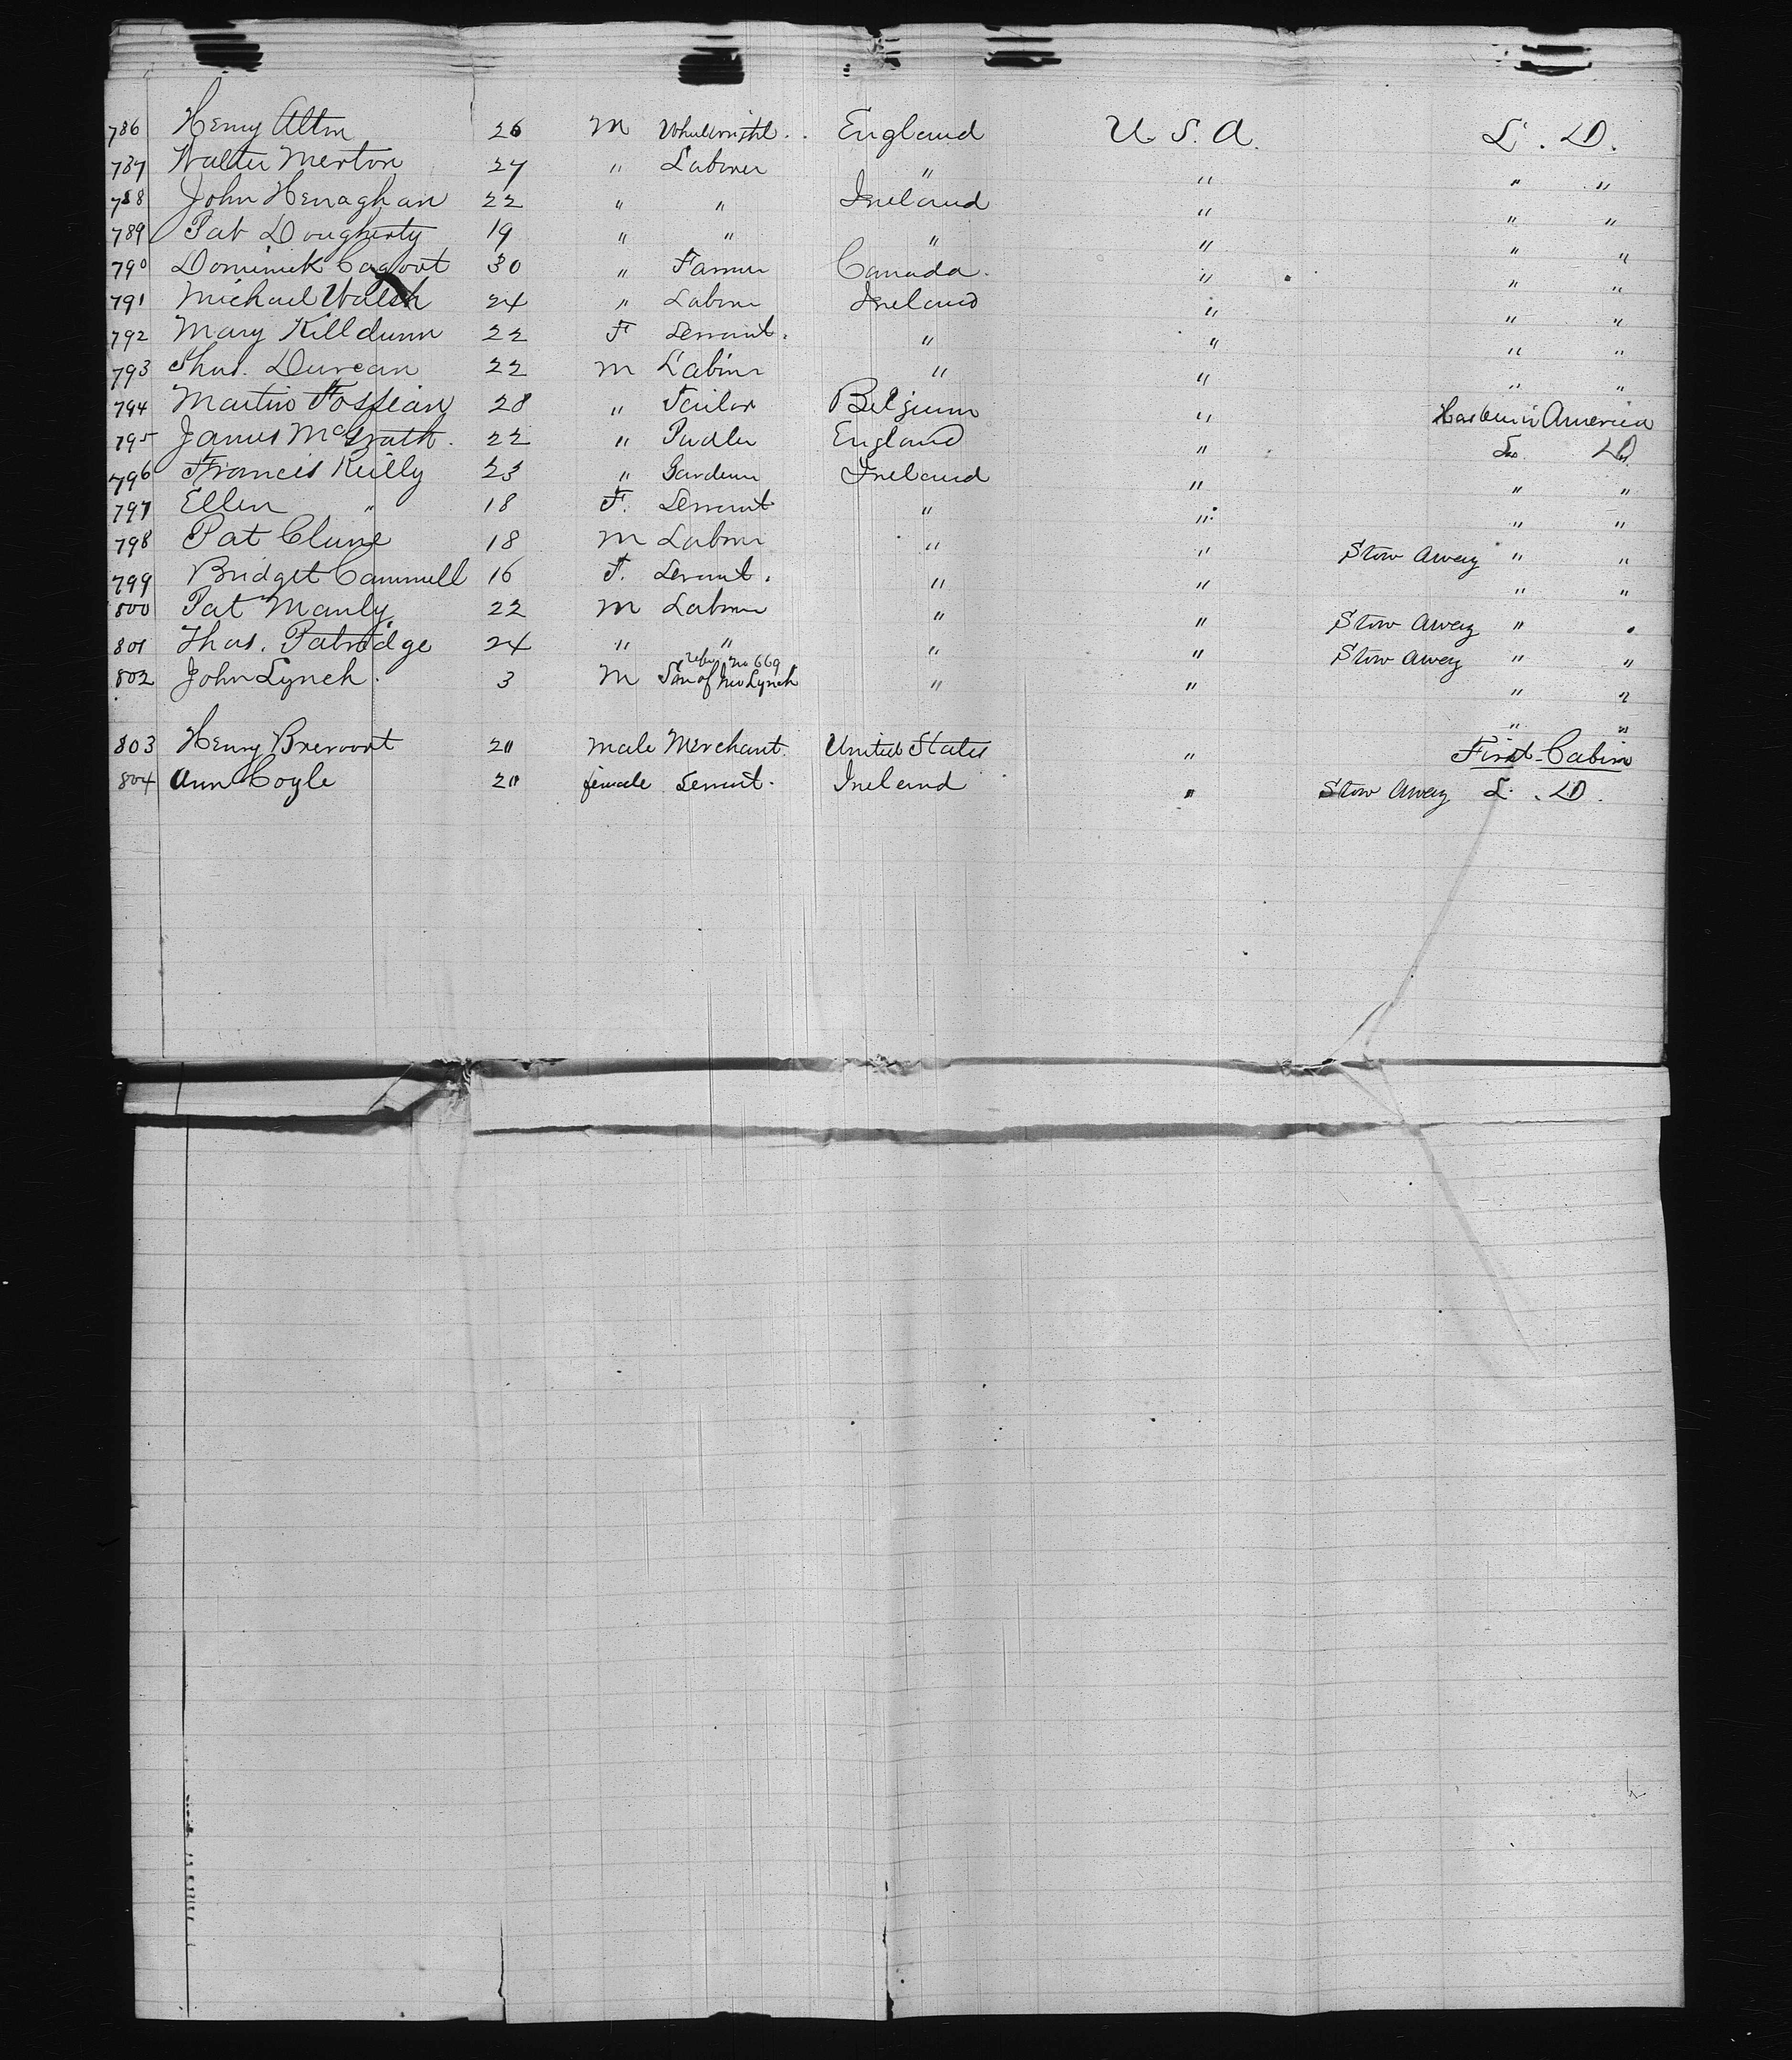 786 Henry Alton 26 M Wheelwright England U.S.A. L. D.
787 Walter Merton 27 " Laborer " " " "
788 John Henaghan 22 " " Ireland " " "
789 Pat Dougherty 19 " " " " " "
790 Dominick 30 " Farmer Canada. " " "
791 Michael Walsh 24 " Laborer Ireland " " "
792 Mary Killdunn 22 F Servant. " " " "
793 Thos. Duncan 22 M Laborer " " " "
794 Martin 28 " Tailor Belgium " Has been in America
795 James McGrath. 22 " Pudler England " L. D.
796 Francis Reilly 23 " Gardener Ireland " " "
797 Ellen " 18 F. Servant " " " "
798 Pat Clune 18 M Laborer " " Stow Away " "
799 Bridget Cammell 16 F. Servant. " " " "
800 Pat Manly 22 M Laborer " " Stow Away "
801 Thos. Patridge 24 " " " " Stow Away " "
refer no 669
802 John Lynch. 3 M Son of Lynch " " " "
" "
803 Henry Brevoort 20 male Merchant United States " First-Cabin
804 Ann Coyle 20 female Servant. Ireland " Stow Away L. D.